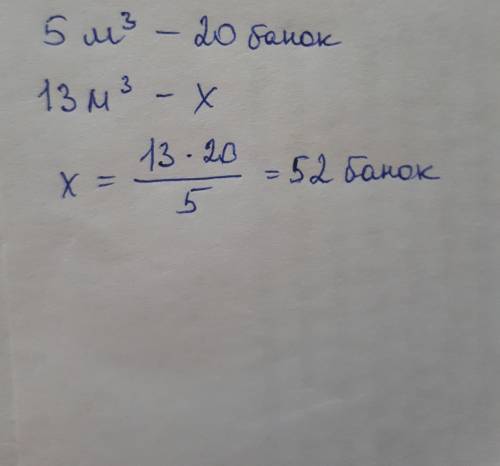 5 м³ – 20 банок
13 м³ – х
х = \frac{13 · 20}{5} = 52 банок